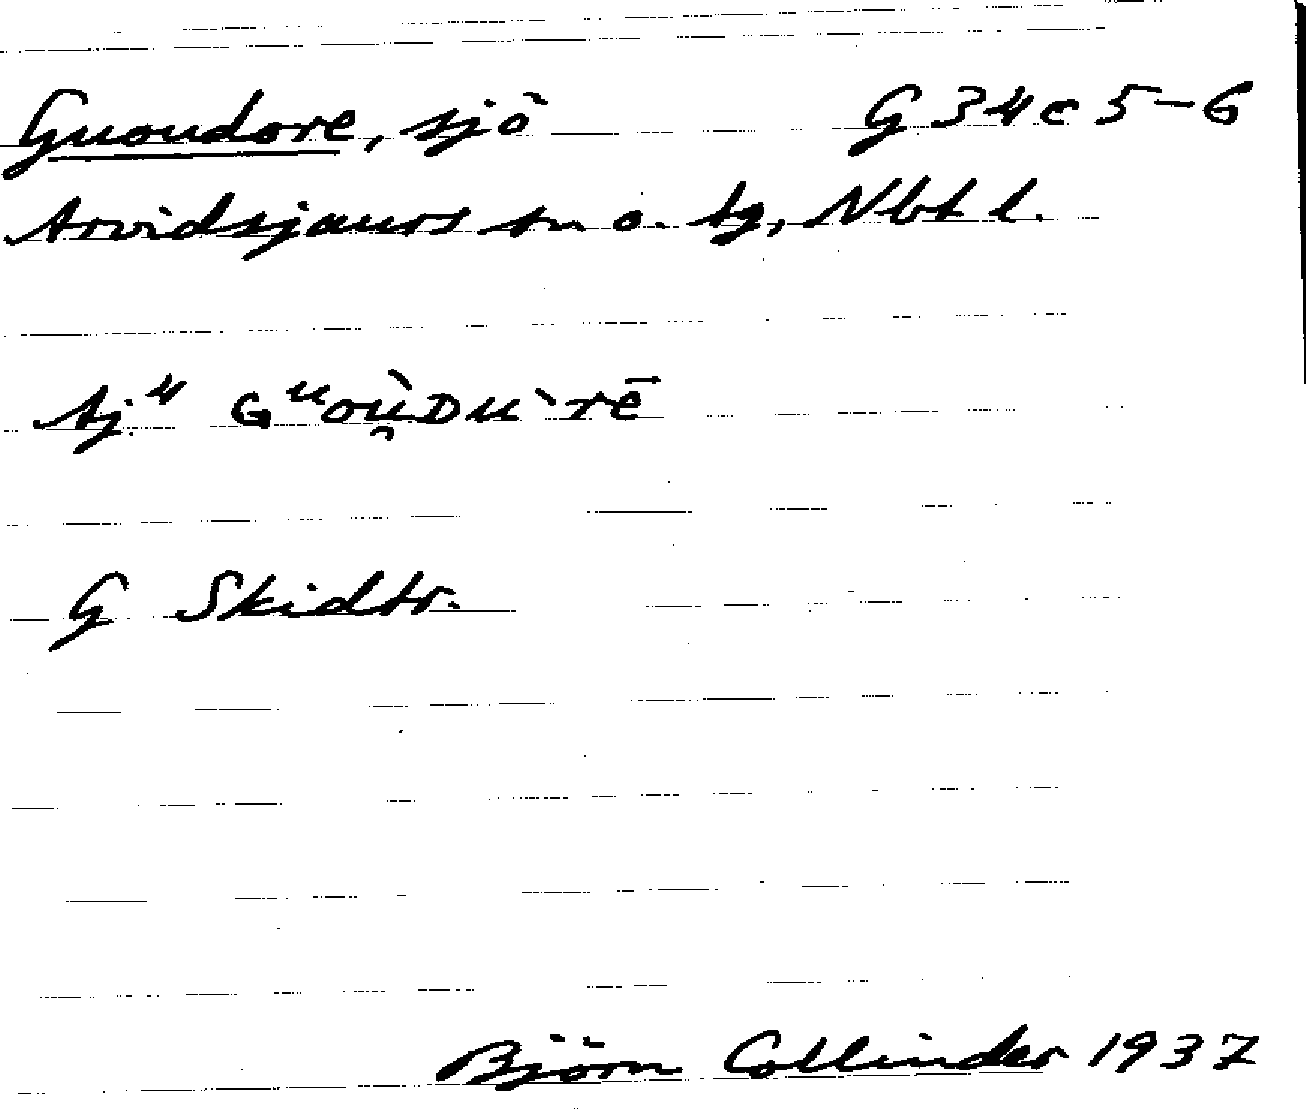 Guoudore, sjö G 34 c 5-6
Arvidsjaurs sn o. tg, Nbt l.
Aj. 4 GᵘoùDu`rē
G Skidtr.
Björn Collinder 1937